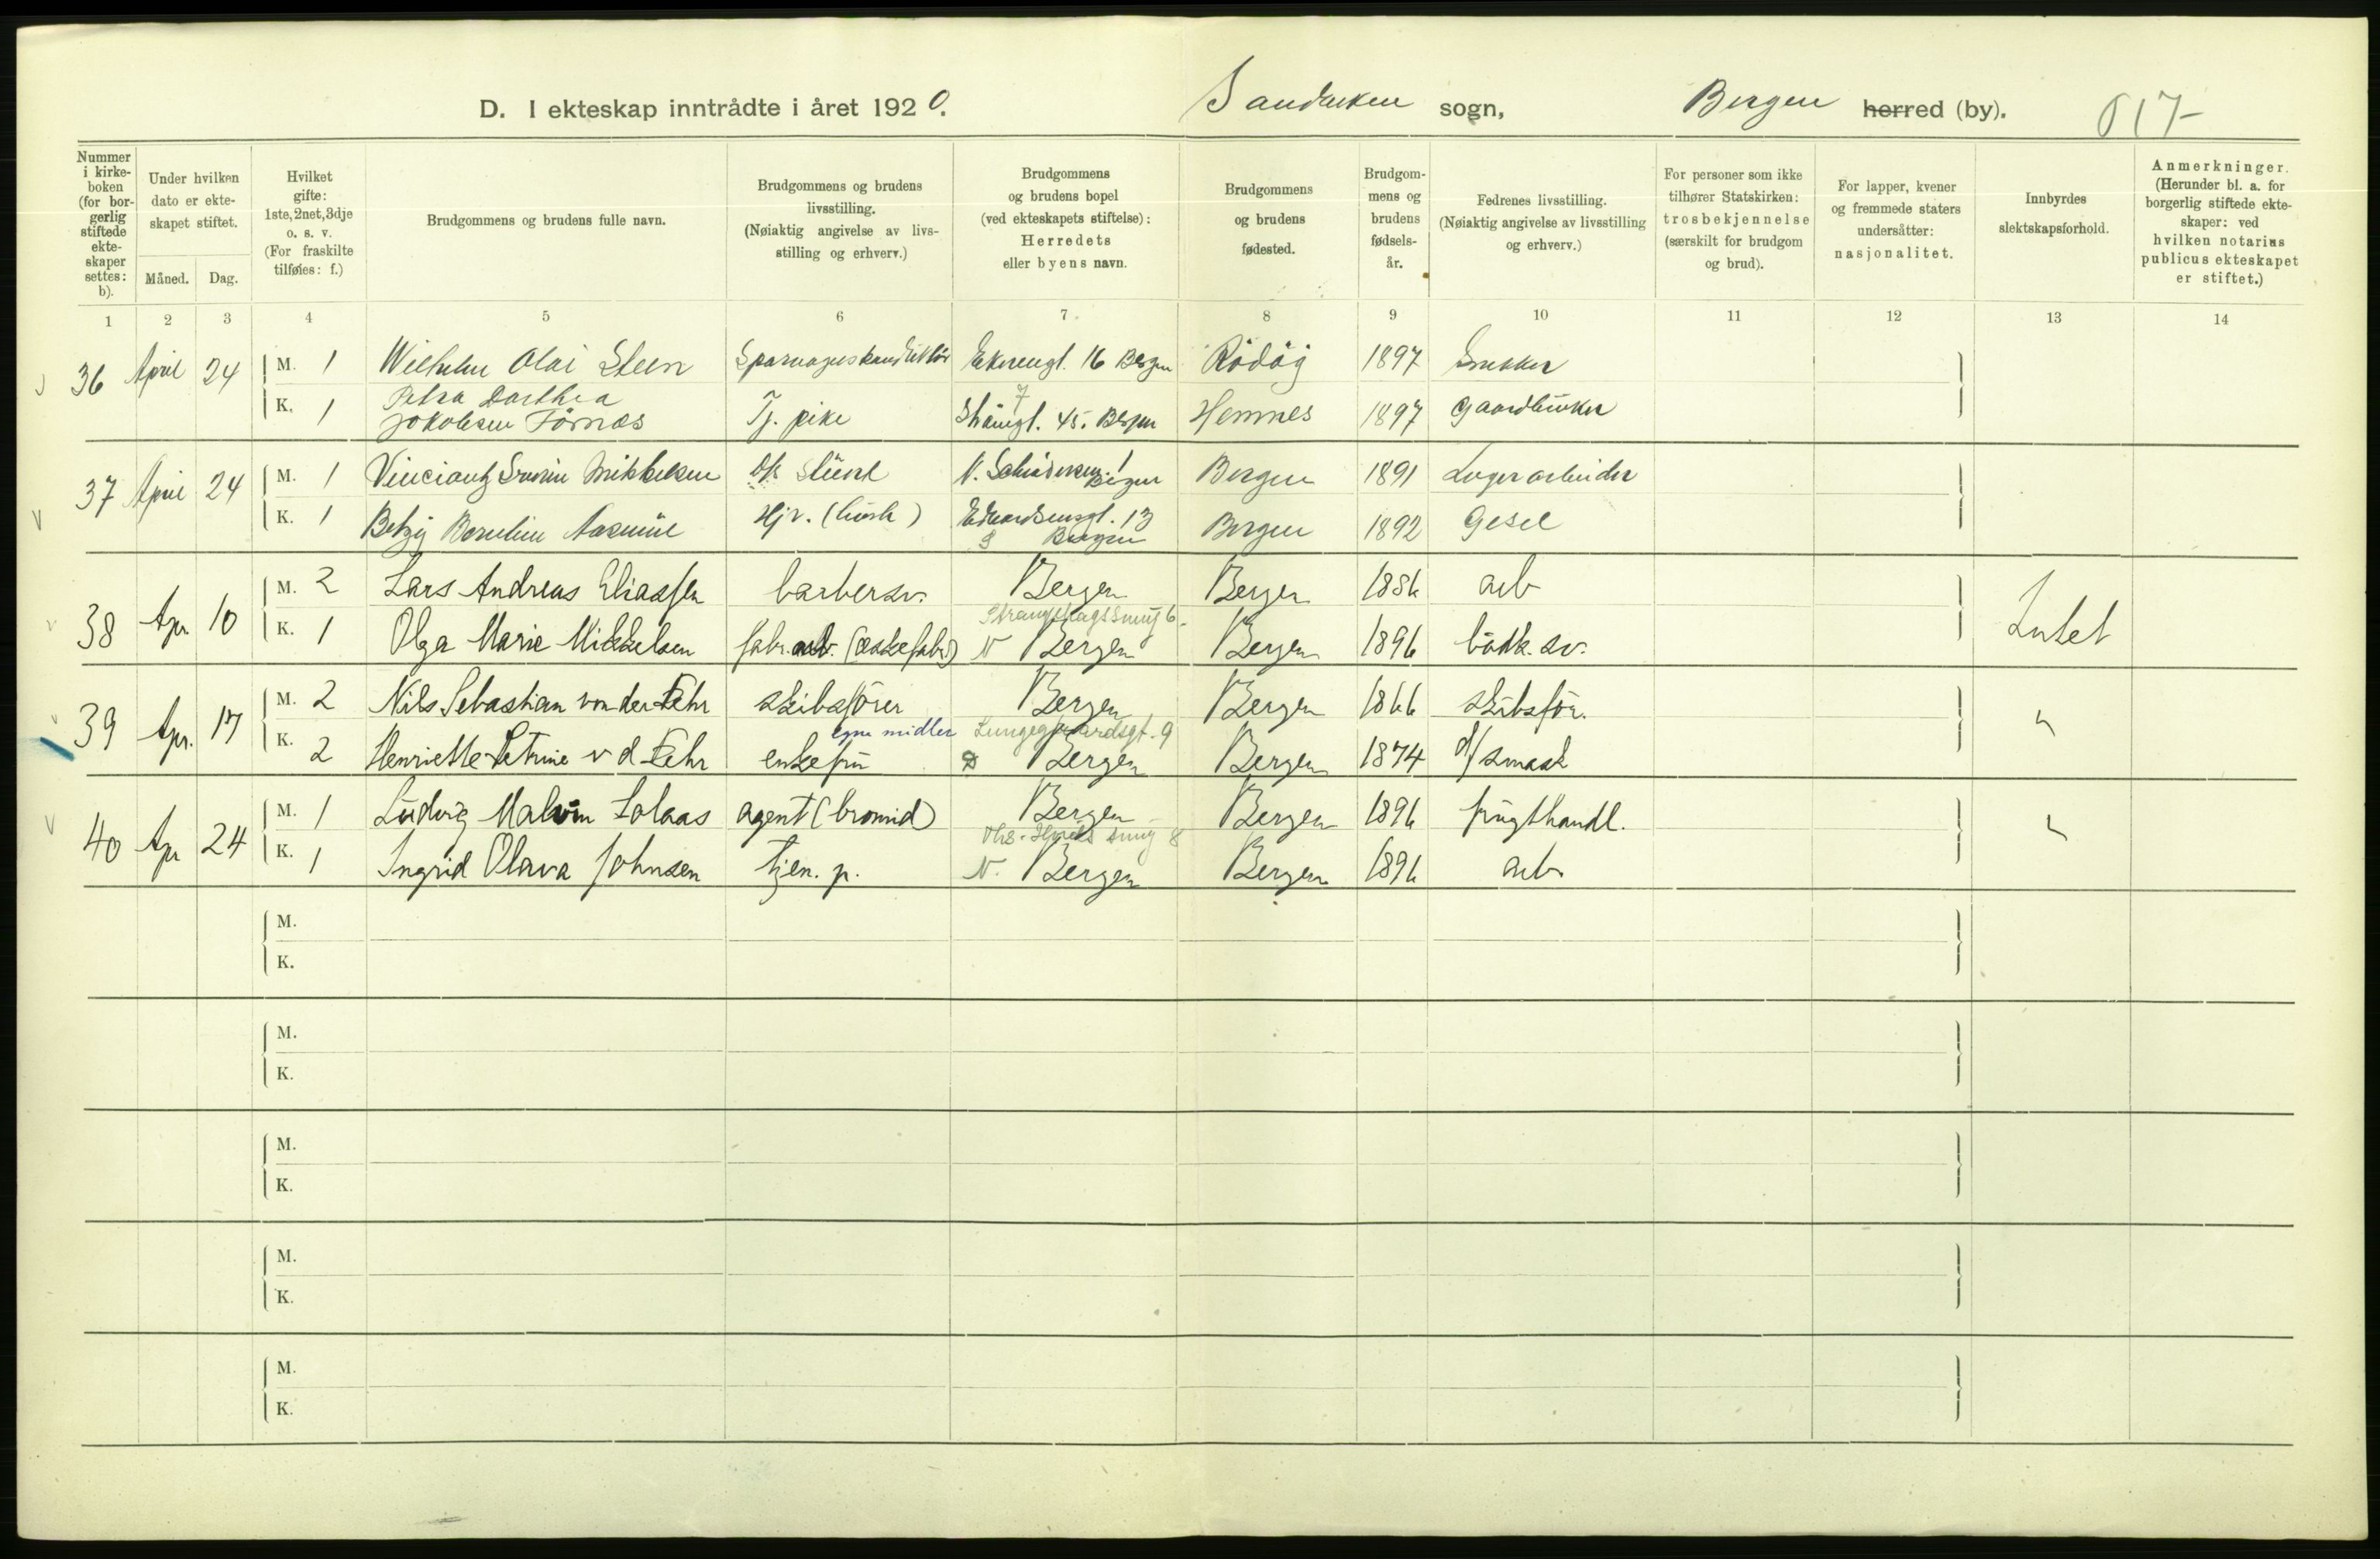 D. I ekteskap inntrådte i året 1920. Sandviken sogn, Bergen herred (by). 617-
Nummer i kirkeboken (for borgerlig stiftede ekteskaper settes: b).
Under hvilken dato er ekteskapet stiftet. Måned. Dag.
Hvilket gifte: 1ste, 2net, 3dje o. s. v. (For fraskilte tilføies: f.)
Brudgommens og brudens fulle navn.
Brudgommens og brudens livsstilling. (Nøiaktig angivelse av livsstilling og erhverv.)
Brudgommens og brudens bopel (ved ekteskapets stiftelse): Herredets eller byens navn.
Brudgommens og brudens fødested.
Brudgommens og brudens fødselsår.
Fedrenes livsstilling. (Nøiaktig angivelse av livsstilling og erhverv.)
For personer som ikke tilhører Statskirken: trosbekjennelse (særskilt for brudgom og brud).
For lapper, kvener og fremmede staters undersåtter: nasjonalitet.
Innbyrdes slektskapsforhold.
Anmerkninger. (Herunder bl. a. for borgerlig stiftede ekteskaper: ved hvilken notarius publicus ekteskapet er stiftet.)
1 2 3 4 5 6 7 8 9 10 11 12 13 14
36 April 24 M. 1 Wilhelm Olai Steen Sporvognskonduktör 16 Bergen Rödöy 1897 Snekker
K. 1 Petra Dorthea Jokobsen Förnes Tj. pike 45. Bergen Hemnes 1897 Gaardbruker
37 April 24 M. 1 Mikkelsen Bergen Bergen 1891 Lagerarbeider
K. 1 Betzy Hjv. (husk) Edvardsensgt. 13 Bergen Bergen 1892 Gesel
38 Apr 10 M. 2 Lars Andreas Eliassen barbersv. Bergen Bergen 1886 arb
K. 1 Olga Marie Mikkelsen fabr. arb. (æskefabr.) Strangehagssmug 6 N Bergen Bergen 1896 bödk. sv. Intet
39 Apr. 17 M. 2 Nils Sebastian von der Fehr skibsförer Bergen Bergen 1866 skibsför.
K. 2 Henriette Petrine v d Fehr enkefru egne midler Lungegaardsgt. 9 Bergen Bergen 1874 d/smask "
40 Apr 24 M. 1 Ludvig Malvin Lolaas agent Bergen Bergen 1896 frugthandl.
K. 1 Ingrid Olava Johnsen tjen. p. smug 8 N. Bergen Bergen 1896 arb "
M.
K.
M.
K.
M.
K.
M.
K.
M.
K.